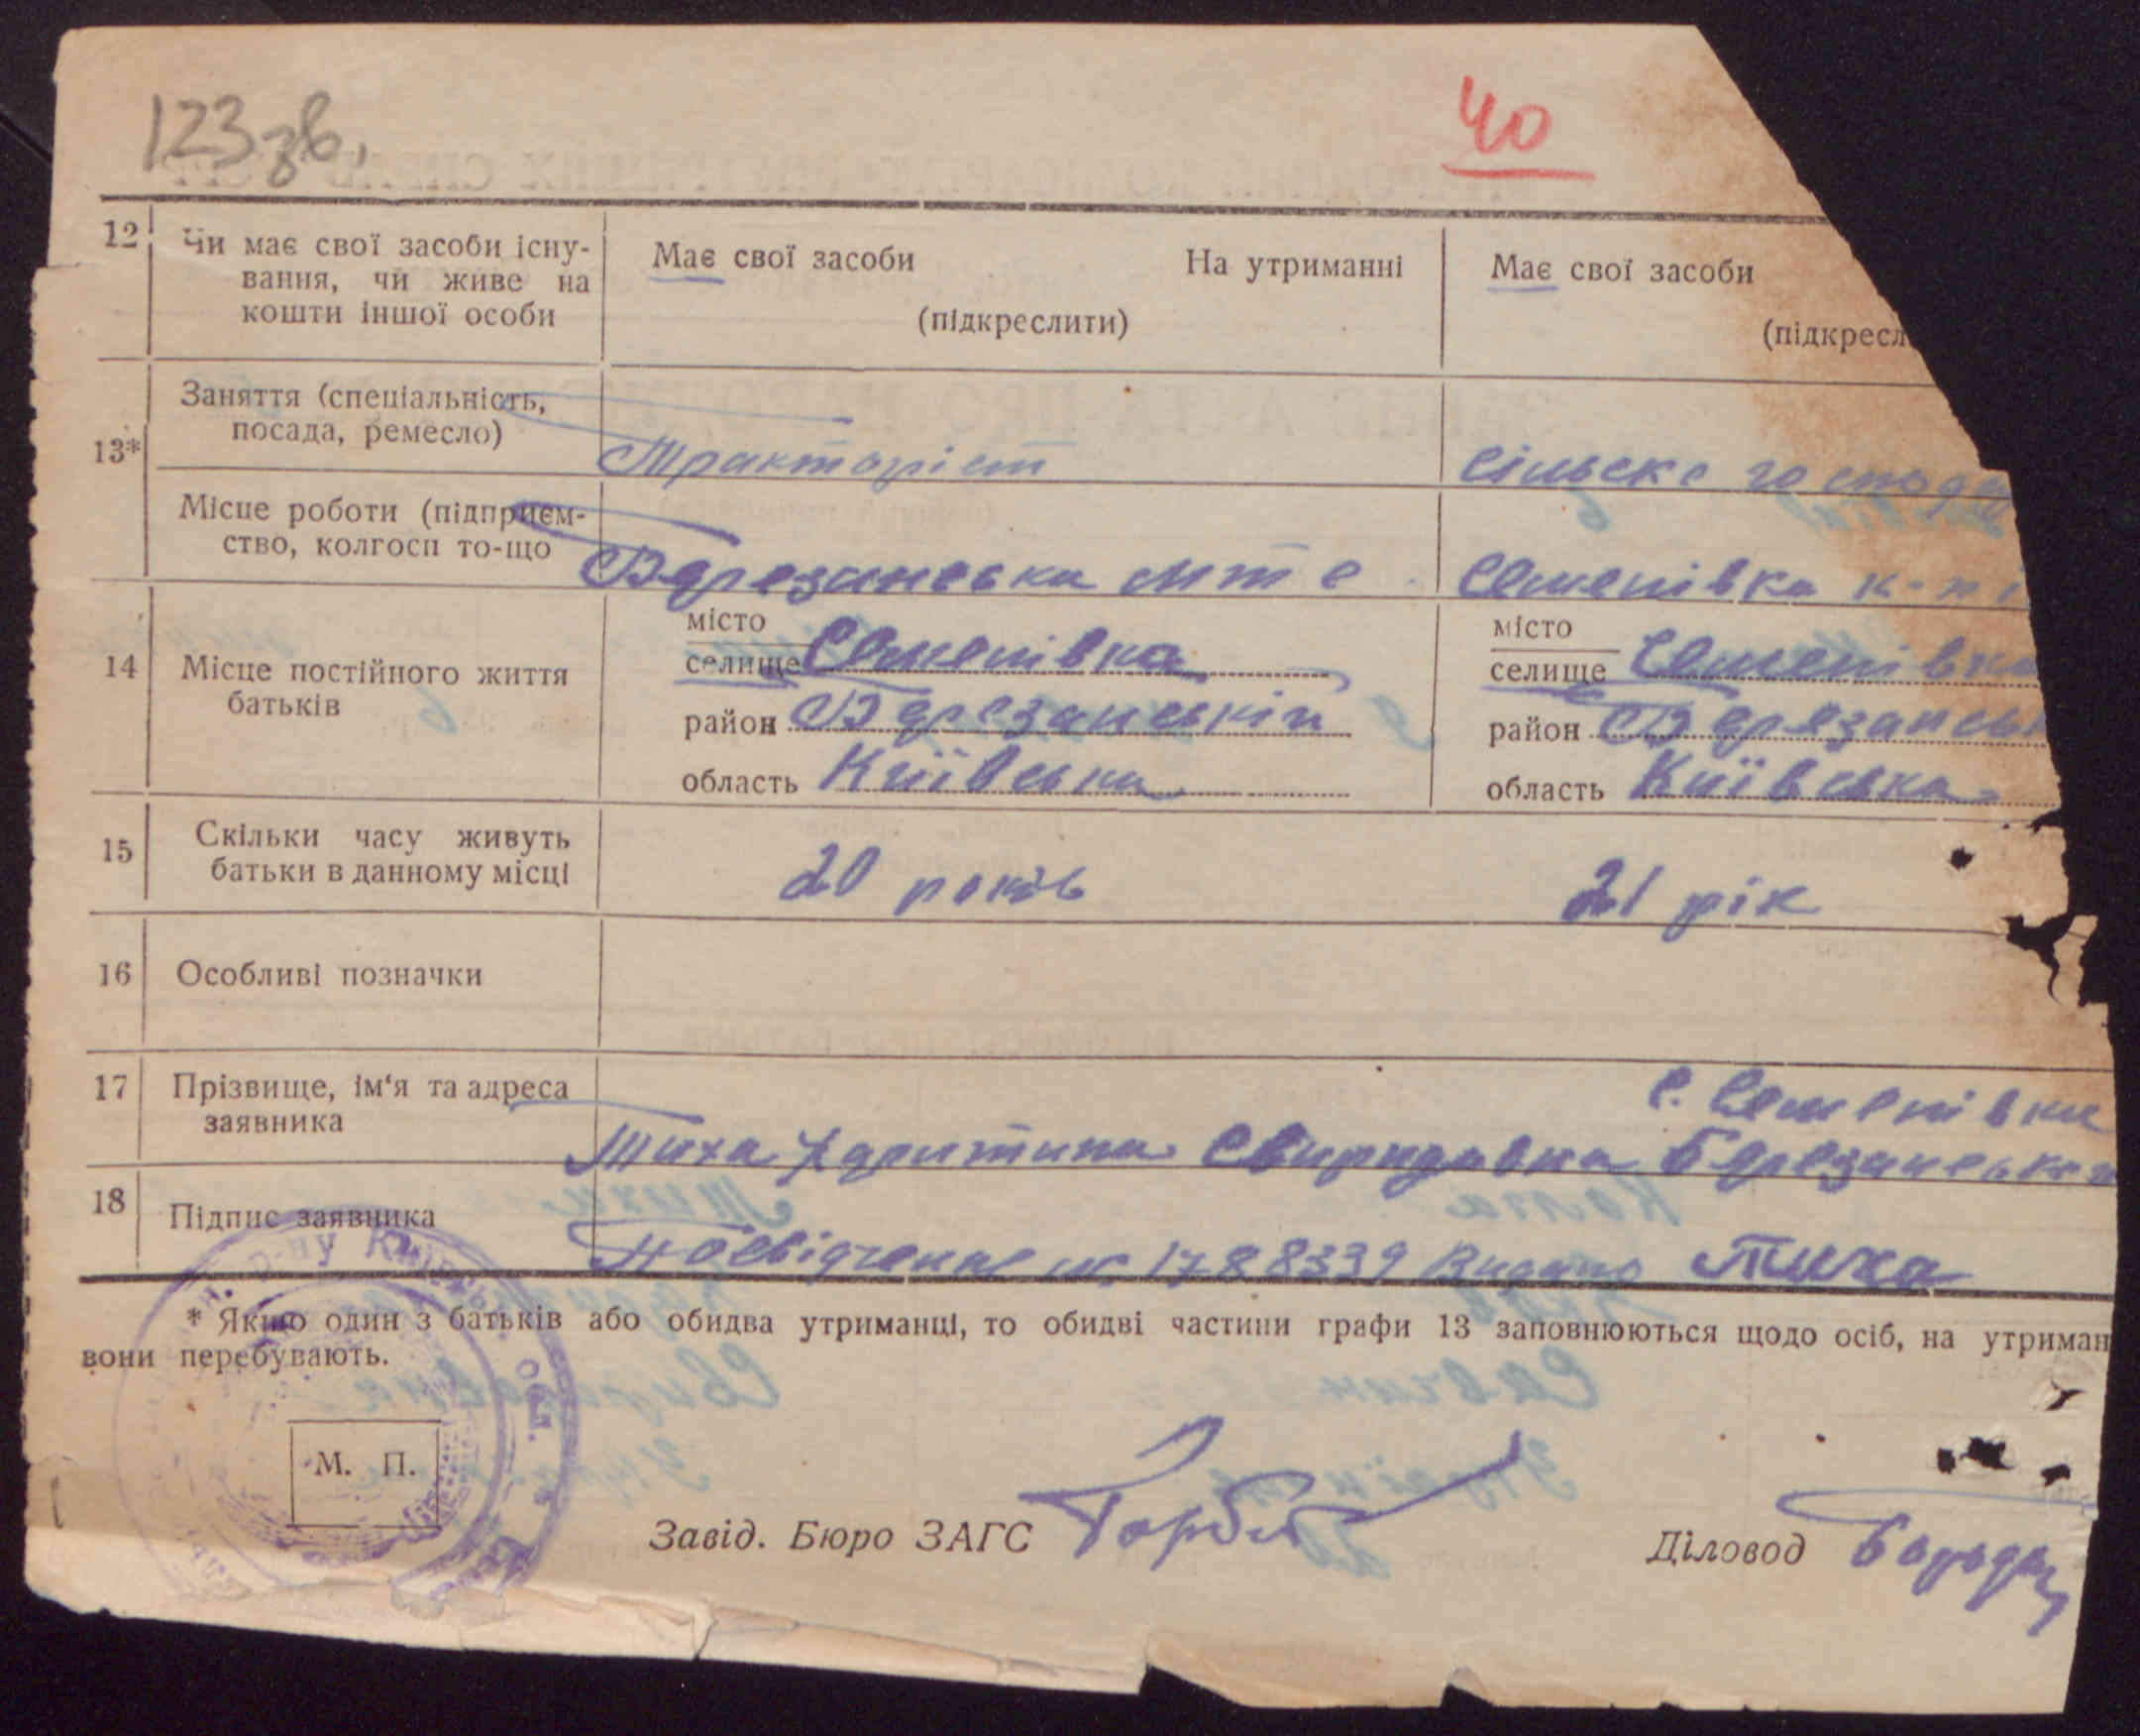 123 зв.
40
12 Чи має свої засоби існу-
вання, чи живе на
кошти іншої особи
Має свої засоби На утриманні
(підкреслити)
Має свої засоби
(підкресл
13*
Заняття (спеціальність,
посада, ремесло)
Тракторіст
Сільске господ
Місце роботи (підприєм-
ство, колгосп то-що
Березанська мтс
Семенівка к-п
14 Місце постійного життя
батьків
місто
селище Семенівка
район Березанській
область Київська
місто
селище Семенівка
район Березанськ
область Київська
15 Скільки часу живуть
батьки в данному місці
20 років
21 рік
16 Особливі позначки
17 Прізвище, ім‘я та адреса
заявника
с. Семенівки
Тиха Свиридовна Березанськ
18 Підпис заявника
Посвідчення № 1788339 Видано Тиха
* Якщо один з батьків або обидва утриманці, то обидві частини графи 13 заповнюються щодо осіб, на утриман
вони перебувають.
М. П.
Завід. Бюро ЗАГС
Діловод